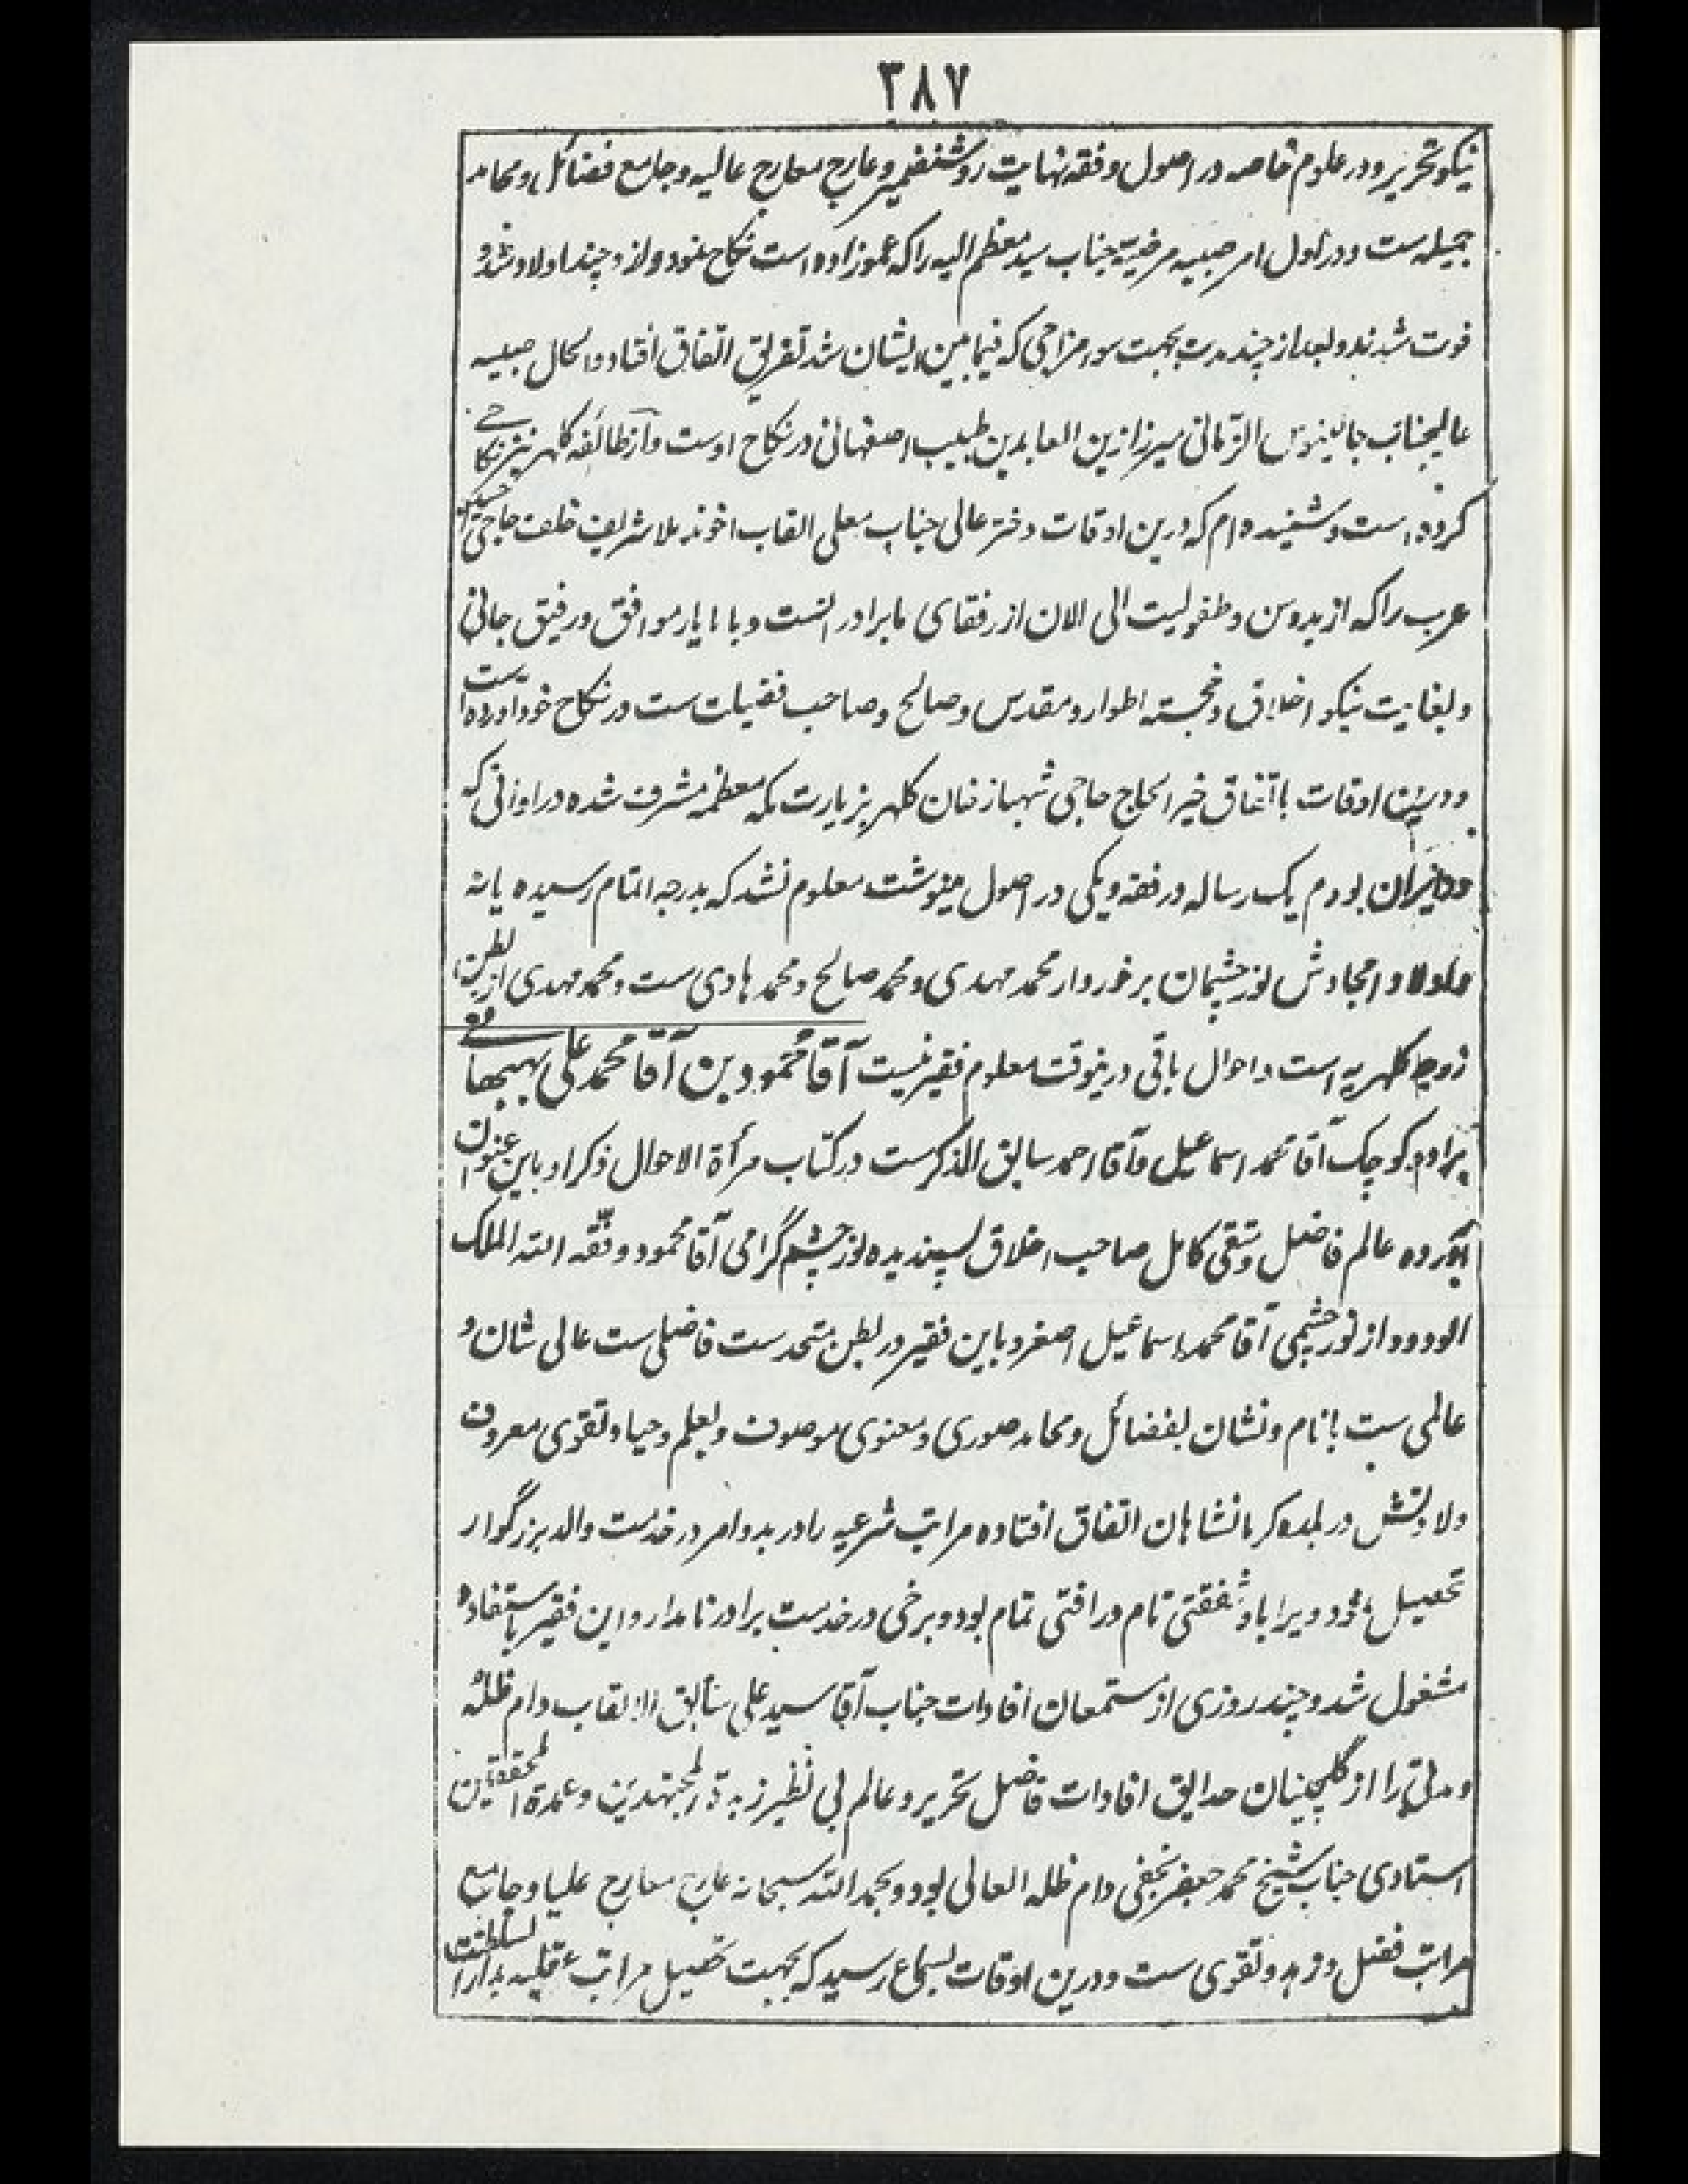 ۳۸۷
نیکو تحریر و در علوم خاصه در اصول و فقه نهایت روشنضمیر و عارج معارج عالیه و جامع فضائل و محامد
جمیله ست و در اول امر صبیه مرضیه جناب سید معظم الیه را که عموزاده است نکاح نمود و از و چند اولاد شد و
فوت شدند و بعد از چند مدت بجهت سوء مزاجی که فیما بین ایشان شد تفریق اتفاق افتاد و الحال صبیه
عالیجناب جالینوس الزمانی میرزا زین العابدین طبیب اصفهانی در نکاح اوست و از طائفه کلهر نیز نکاحی
کرده است و شنیده ام که درین اوقات دختر عالی جناب معلی القاب اخوند ملا شریف خلف حاجی
عرب را که از بدو سن و طفولیت الی الان از رفقای ما برادرانست و با ما یار موافق و رفیق جانی
و بغایت نیکو اخلاق و خجسته اطوار و مقدس و صالح و صاحب فضیلت ست در نکاح خود آورده است
و درین اوقات باتفاق خیر الحاج حاجی شهباز خان کلهر بزیارت مکه معظمه مشرف شده در اوانی که
در ایران بودم یک رساله در فقه و یکی در اصول مینوشت معلوم نشد که بدرجه اتمام رسیده یا نه
و اولاد امجادش نور چشمان برخوردار محمد مهدی و محمد صالح و محمد هادی ست و محمد مهدی از بطن
زوجه کلهریه است و احوال باقی درینوقت معلوم فقیر نیست آقا محمود بن آقا محمد علی بهبهانی
برادر کوچک آقا محمد اسماعیل و آقا احمد سابق الذکرست در کتاب مرأة الاحوال ذکر او باین عنوان
آورده عالم فاضل و متقی کامل صاحب اخلاق پسندیده نور چشم گرامی آقا محمود وفقه الله الملک
الودود از نور چشمی آقا محمد اسماعیل اصغر و باین فقیر در بطن متحد ست فاضلی ست عالی شان و
عالمی ست با نام و نشان بفضائل و محامد صوری و معنوی موصوف و بعلم و حیا و تقوی معروف
ولادتش در بلده کرمانشاهان اتفاق افتاده مراتب شرعیه را در بدو امر در خدمت والد بزرگوار
تحصیل نمود و ویرا باو شفقتی تام و رافتی تمام بود و برخی در خدمت برادر نامدار و این فقیر باستفاده
مشغول شد و چند روزی از مستمعان افادات جناب آقا سید علی سابق الالقاب دام ظله
و مدتی را از گلچینان حدایق افادات فاضل نحریر و عالم بی نظیر زبدة المجتهدین و عمدة المحققین
استادی جناب شیخ محمد جعفر نجفی دام ظله العالی بود و بحمد الله سبحانه عارج معارج علیا و جامع
مراتب فضل و زهد و تقوی ست و درین اوقات بسماع رسید که بجهت تحصیل مراتب عقلیه بدار السلطنت